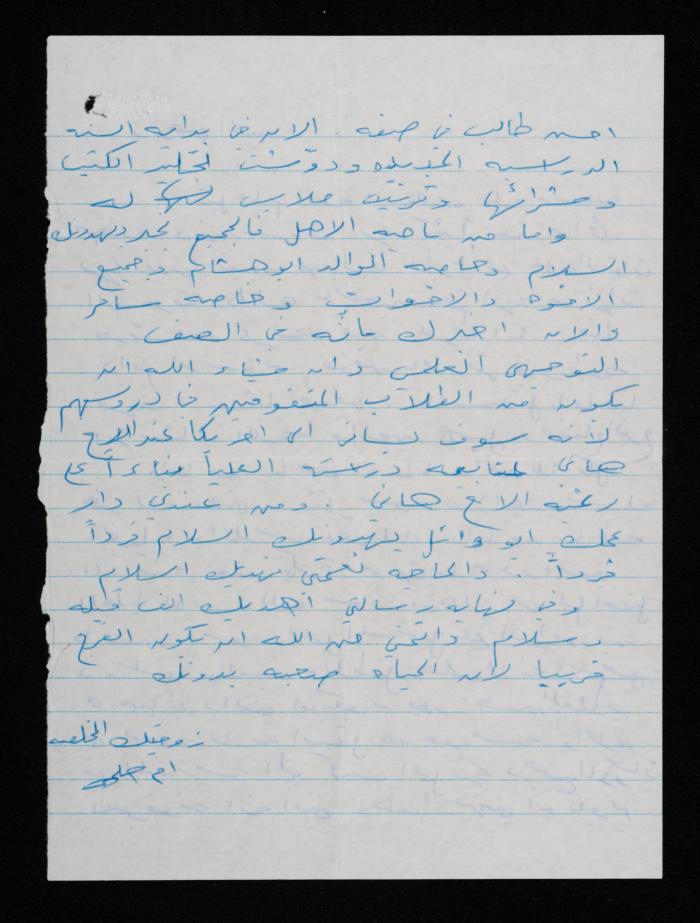 احسن طالب في صفه. الان في بداية السنه
الدراسيه الجديده ودوشت تجليد الكتب
وشرائها وترتيب ملابس له
واما من ناحيه الاهل فالجميع بخير ويهدونك
السلام وخاصه الوالد ابو هشام وجميع
الاخوه والاخوات وخاصه سامر
والان اخبرك بأنه في الصف
التوجيهي العلمي وان شاء الله ان
يكون من الطلاب المتفوقين في دروسهم
لانه سوف يسافر الى امريكا عند الاخ
هاني لمتابعه دراسته العليا بناءاً على
رغبه الاخ هاني. ومن عندي دار
عمك ابو وائل يهدونك السلام فرداً
فرداً. والحاجه نعمتي تهديك السلام
وفي نهايه رسالتي اهديك الف قبله
وسلام واتمنى من الله ان يكون الفرج
قريبا لان الحياه صعبه بدونك
زوجتك المخلصه
ام علي